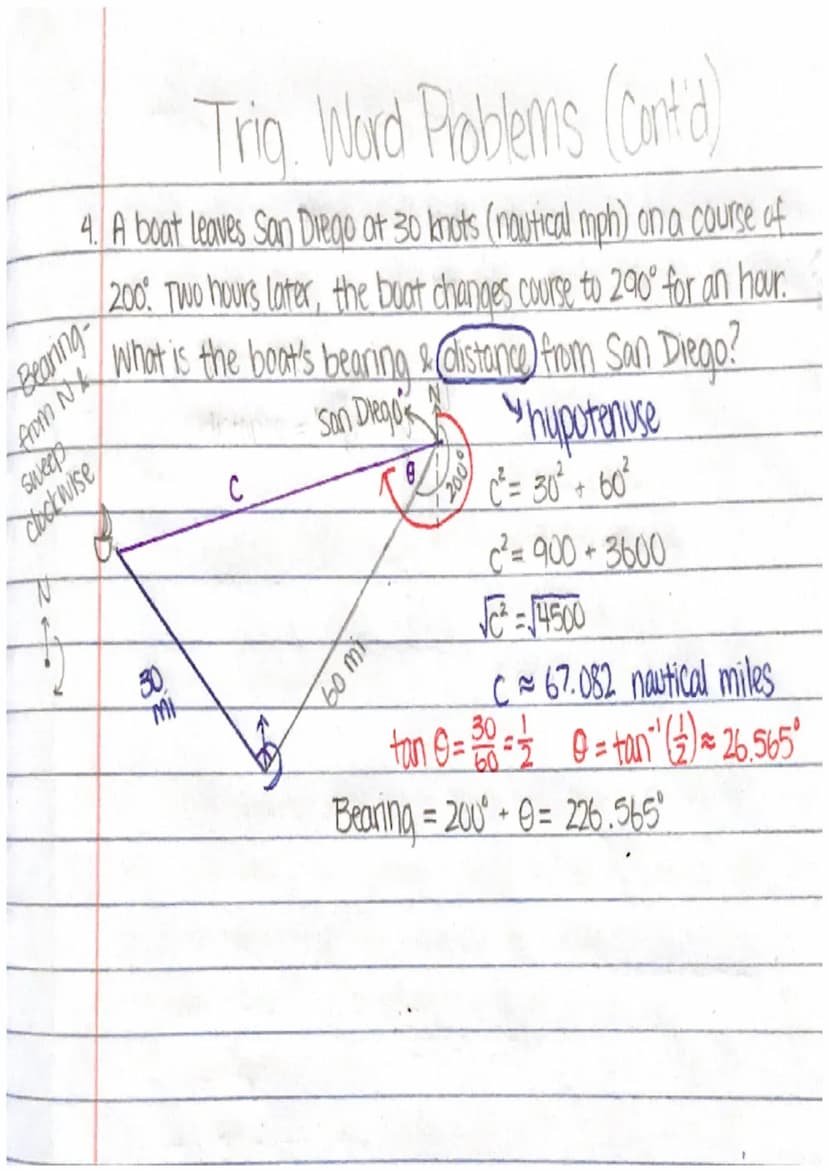 Trig. Word Problems (Cont'd)
4. A boat leaves San Diego at 30 knots (nautical mph) on a course of
200°. Two hours later, the boat changes course to 290° for an hour.
What is the boat's bearing & distance from San Diego?
Bearing-
from N &
sweep
clockwise
N
San Diego
N
hypotenuse
θ
200°
C
c² = 30² + 60²
c² = 900 + 3600
√c² = √4500
c ≈ 67.082 nautical miles
30
mi
60 mi
tan θ = 30/60 = 1/2 θ = tan⁻¹(1/2) ≈ 26.565°
Bearing = 200° + θ = 226.565°